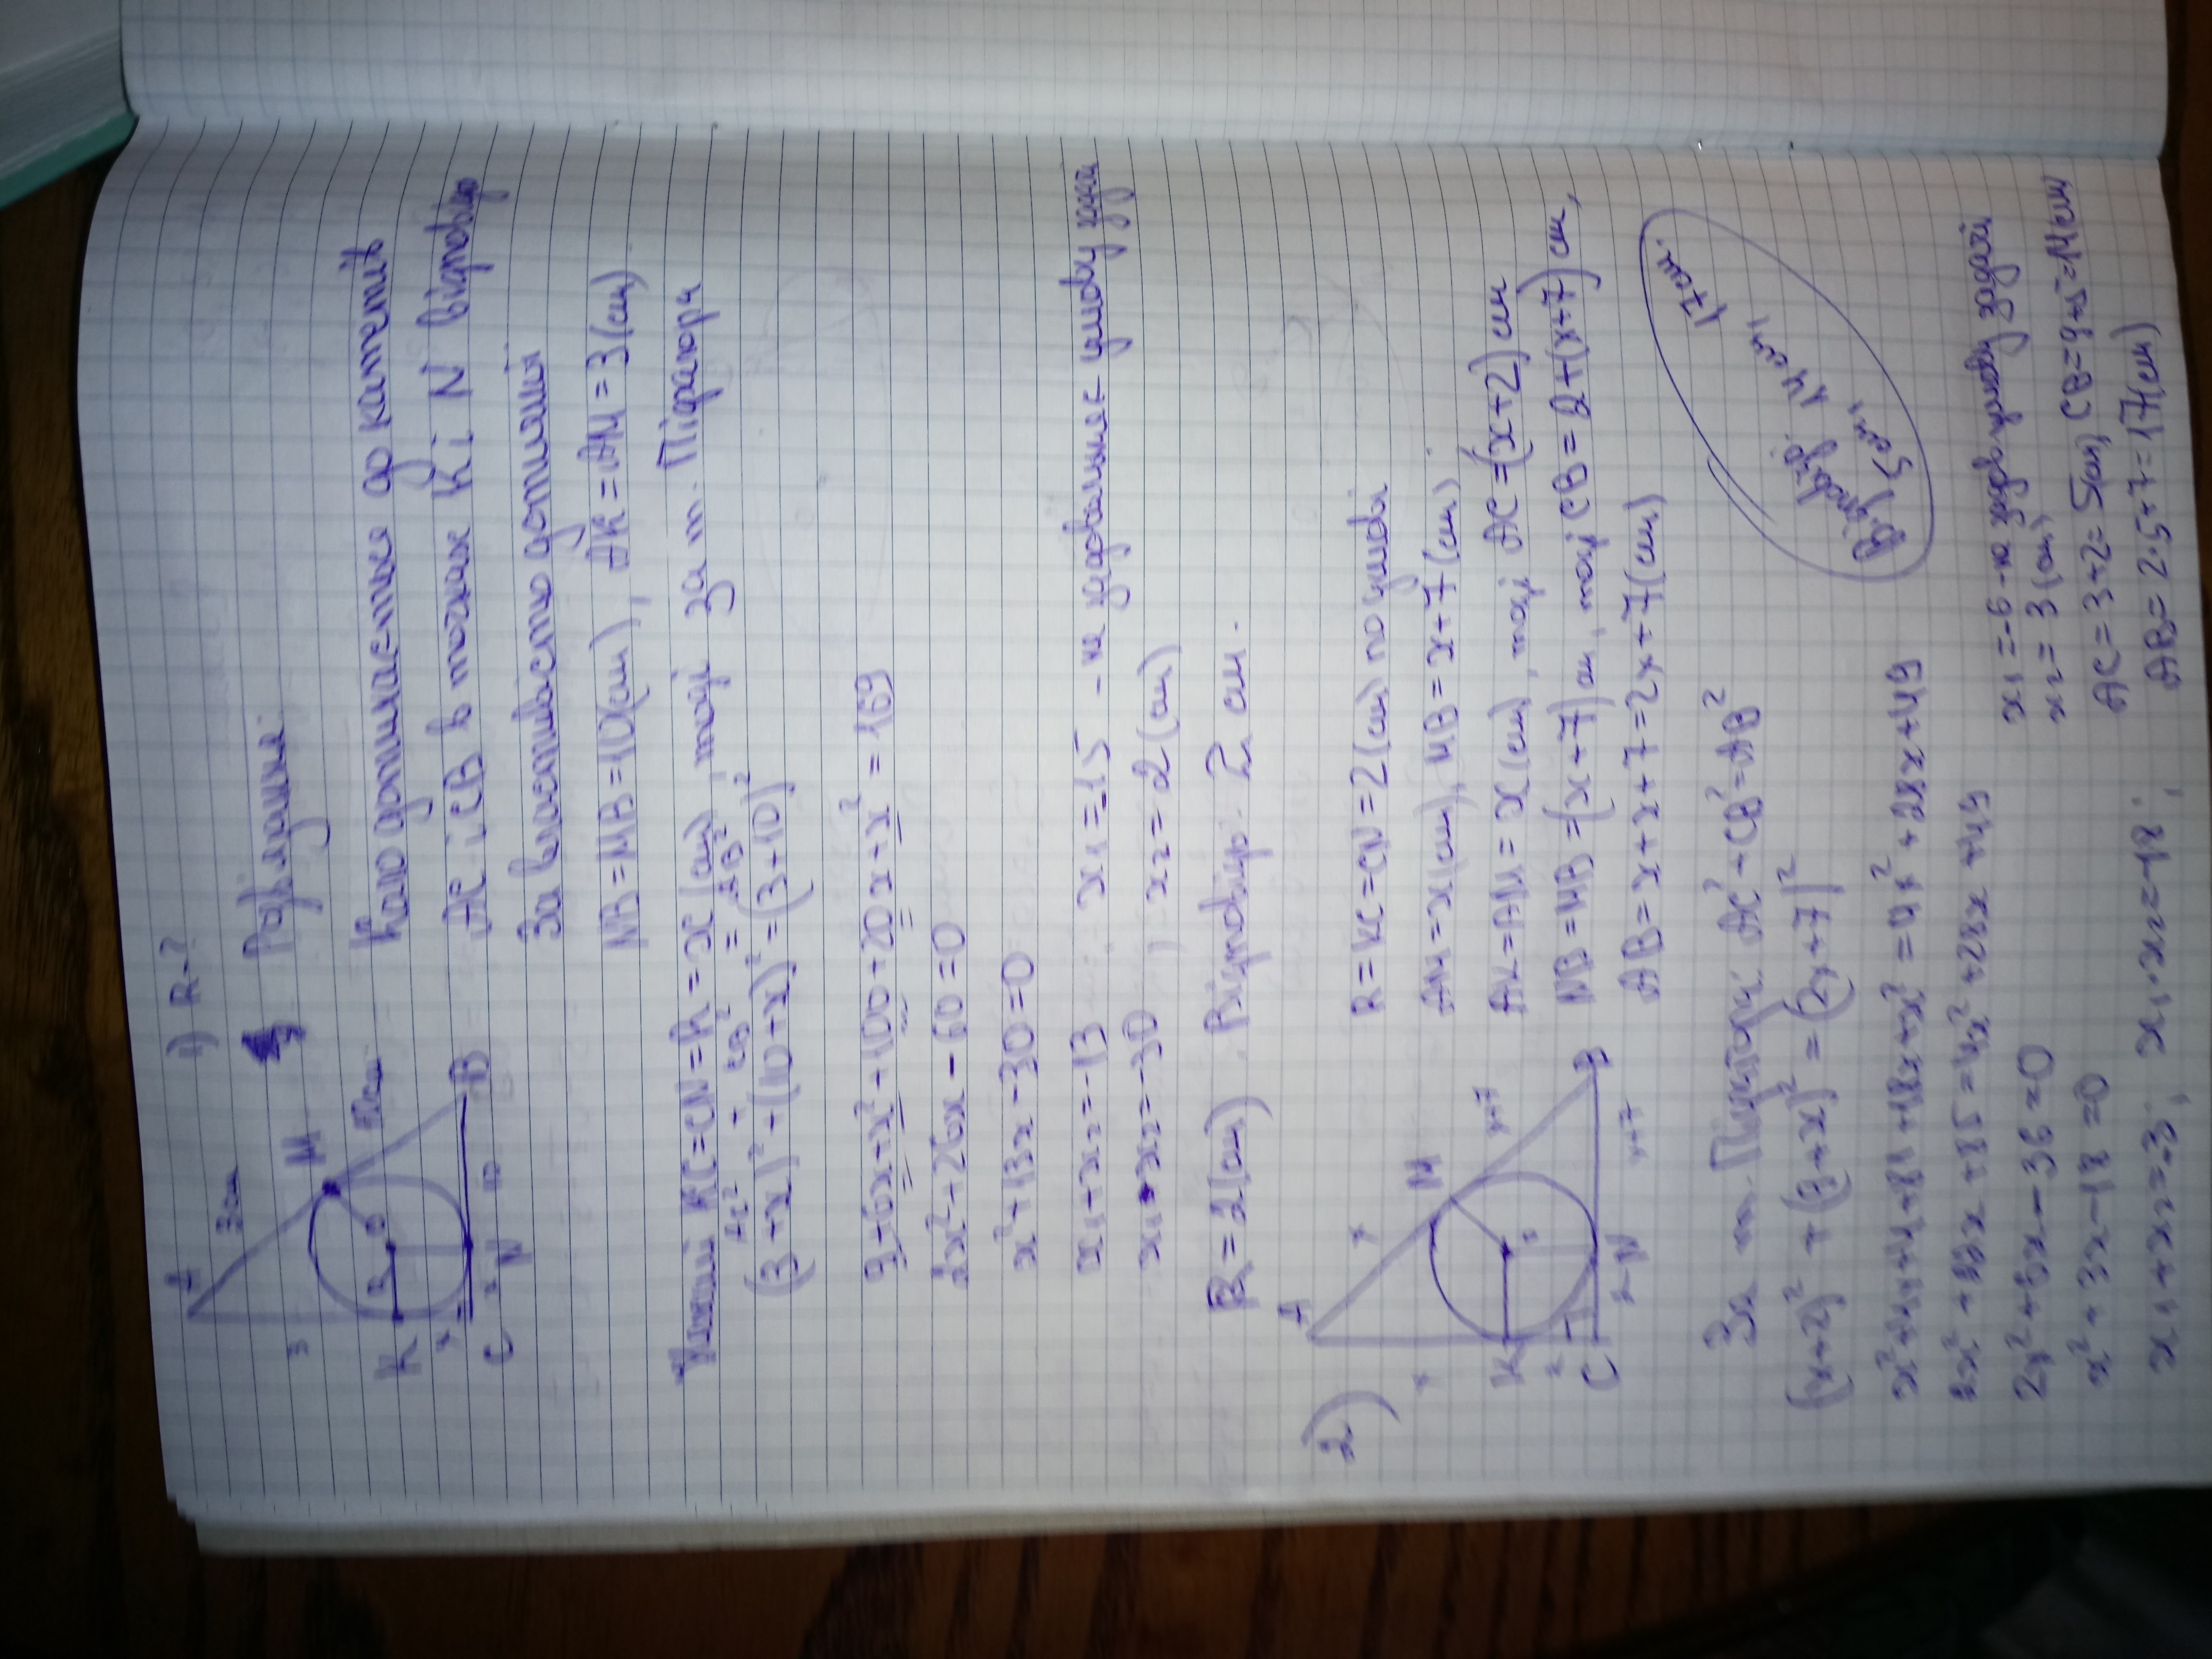 1) R-?
A
3см
M
10см
3
K
R
O
x
C
x
N
10
B
Розв'язання:
Коло дотикається до катетів
AC і CB в точках K і N відповідно
За властивістю дотичних
NB=MB=10(см), AK=AM=3(см)
Нехай KC=CN=R=x(см), тоді за т. Піфагора
AC² + CB² = AB²
(3+x)²+(10+x)²=(3+10)²
9+6x+x²+100+20x+x²=169
2x²+26x-60=0
x²+13x-30=0
x₁+x₂=-13 x₁=-15 - не задовольняє умову задачі
x₁•x₂=-30 x₂=2(см)
R=2(см). Відповідь: 2 см.
2)
A
x
M
x+7
x
K
2
C
2
N
x+7
B
R=KC=CN=2(см) по умові
AM=x(см), MB=x+7(см)
AK=AM=x(см), тоді AC=(x+2)см
NB=MB=(x+7)см, тоді CB=2+(x+7)см,
AB=x+x+7=2x+7(см)
За т. Піфагора: AC²+CB²=AB²
(x+2)²+(9+x)²=(2x+7)²
x²+4x+4+81+18x+x²=4x²+28x+49
2x²+22x+85=4x²+28x+49
2x²+6x-36=0
x²+3x-18=0
x₁+x₂=-3; x₁·x₂=-18;
x₁=-6-не задов. умову задачі
x₂=3(см)
AC=3+2=5(см), CB=9+3=14см
AB=2·5+7=17(см)
Відповідь:
5см, 14см, 17см.